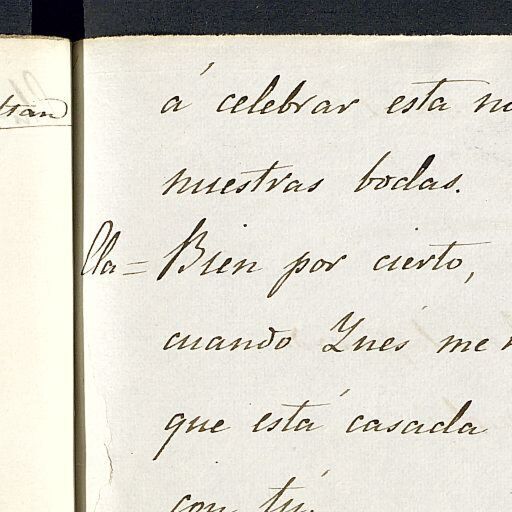 á celebrar esta
nuestras bodas.
Cla = Bien por cierto,
cuando Ynés me
que está casada
con tú.